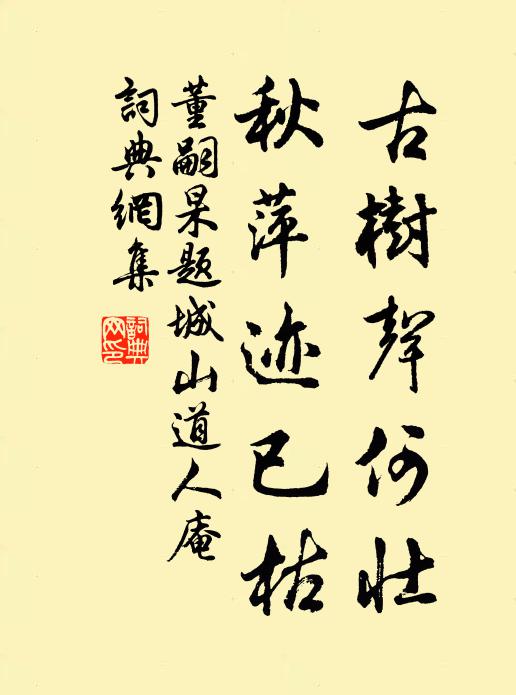 古樹聲何壯
秋萍迹已枯
董嗣杲题城山道人庵
詞典網集
詞典網印